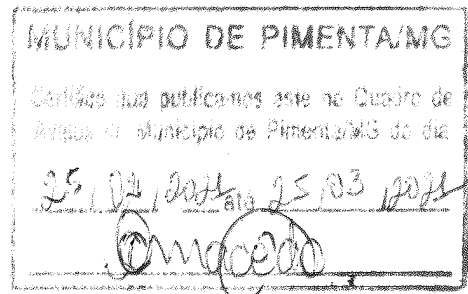 MUNICÍPIO DE PIMENTA/MG
Certifico que publicamos este no Quadro de
Avisos do Município de Pimenta/MG do dia
25/02/2021 até 25/03/2021